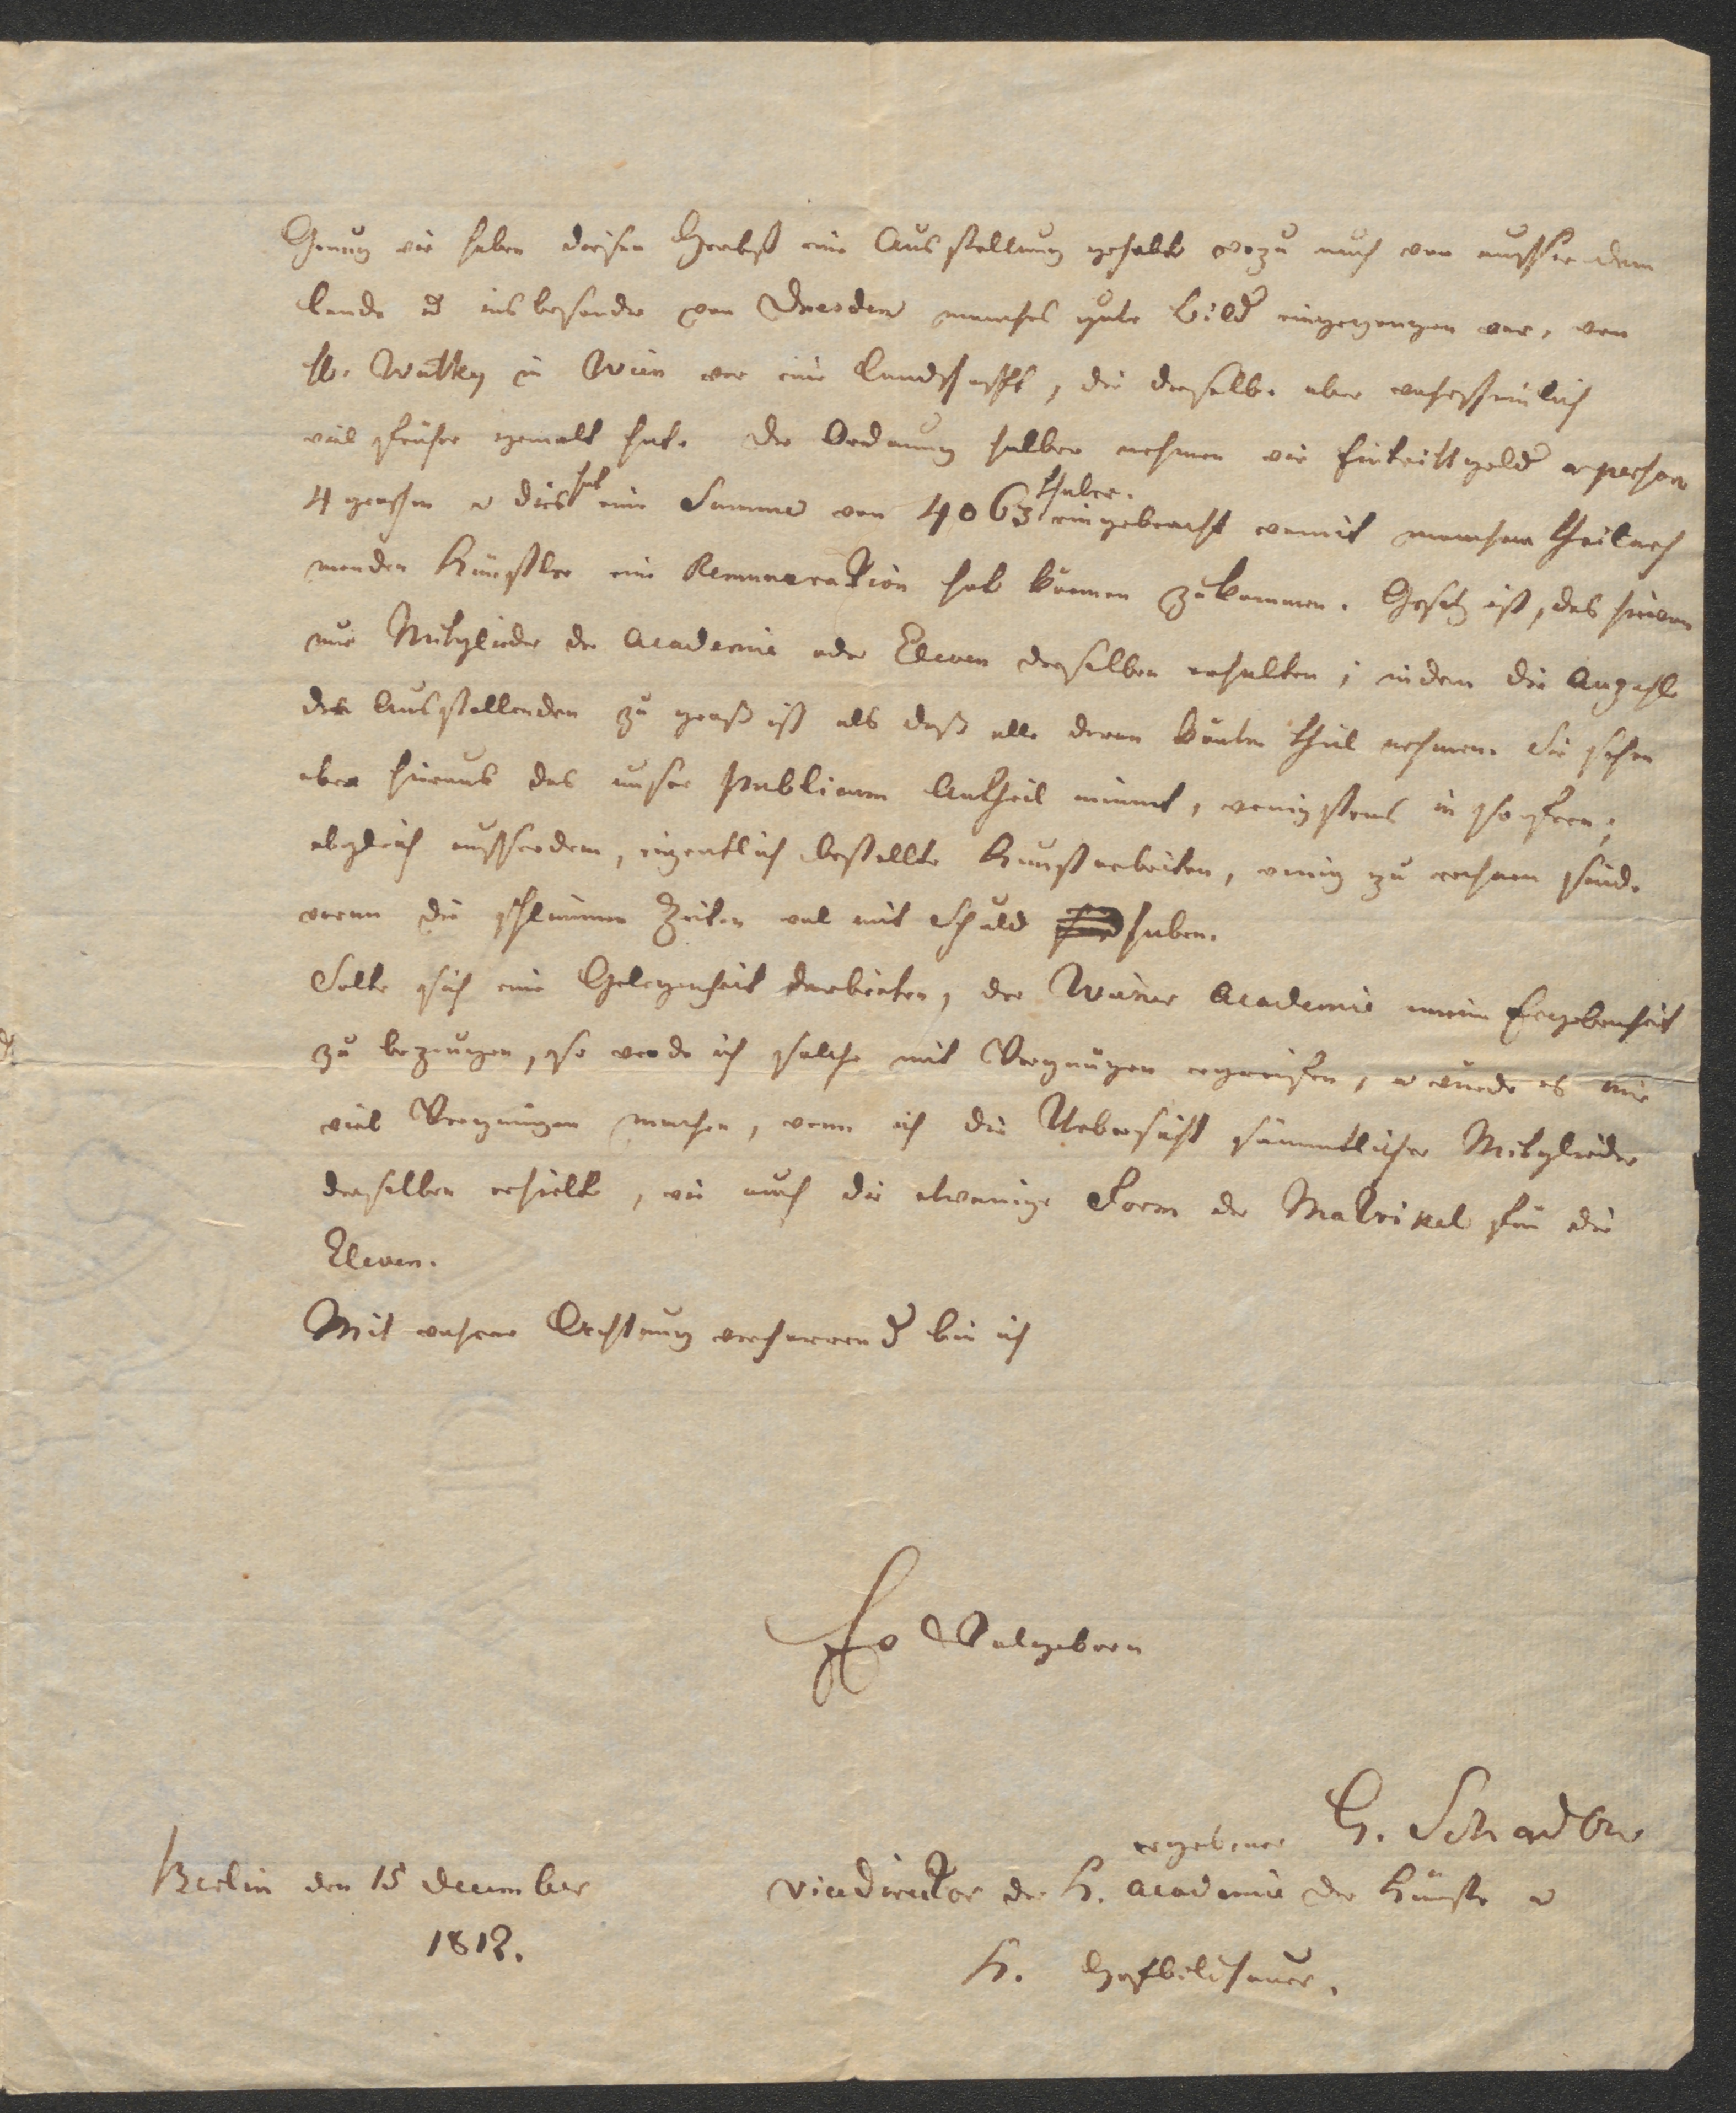 Genug wir haben diesen Herbst eine Ausstellung gehabt wozu auch von ausser dem
Lande u insbesondre von Dresden manches gute Bild eingegangen war, von
H. Wutky in Wien war eine Landschafft, die derselbe aber wahrscheinlich
viel früher gemalt hat. Der Ordnung halber nehmen wir Eintrittgeld a person
4 groschen u dies hat eine Summe von 4063 thaler. eingebracht womit manchem theilneh
menden Künstler eine Remuneration hat können zukommen. Gesetz ist, das hievon
nur Mitglieder der Academie oder Eleven derselben erhalten; indem die Anzahl
der Ausstellenden zu groß ist als daß alle daran könten theil nehmen. Sie sehen
aber hieraus das unser Publicum Antheil nimmt, wenigstens in so fern;
obgleich ausserdem, eigentlich bestellte Kunstarbeiten, wenig zu rechnen sind.
woran die schlimmen Zeiten wol mit Schuld haben.
Solte sich eine Gelegenheit darbieten, der Wiener Academie meine Ergebenheit
zu bezeugen, so werde ich solche mit Vergnügen ergreifen, u würde es mir
viel Vergnügen machen, wenn ich die Uebersicht sämmtlicher Mitglieder
derselben erhielte, wie auch die etwanige Form der Matrikel für die
Eleven.
Mit wahrer Achtung verharrend bin ich
Ew Wolgeborn
ergebener G. Schadow
Berlin den 15 december
1812.
Vicedirector der K. academie der Künste u
K. Hofbildhauer.